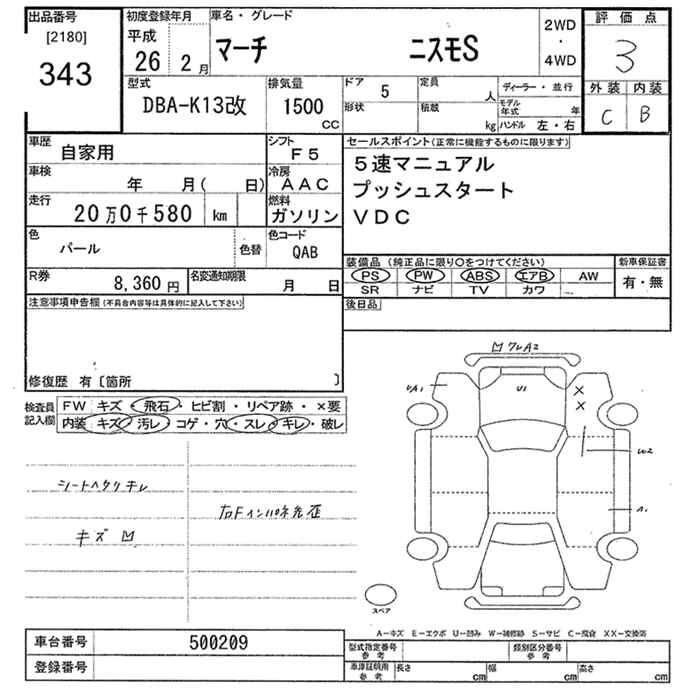 出品番号
[2180]
343
初度登録年月
平成
26 2 月
車名・グレード
マーチ ニスモS
2WD
・
4WD
評価点
3
外装 内装
C B
型式
DBA-K13改
排気量
1500
CC
ドア 5
形状
定員 人
積載 kg
ディーラー・並行
モデル年式 年
ハンドル 左・右
車歴
自家用
シフト
F5
車検
年 月( 日)
冷房
AAC
走行
20万0千580 km
燃料
ガソリン
色
パール
色替
色コード
QAB
R券
8,360 円
名変通知期限
月 日
セールスポイント(正常に機能するものに限ります)
5速マニュアル
プッシュスタート
VDC
装備品 (純正品に限り〇をつけてください)
PS PW ABS エアB AW
SR ナビ TV カワ
新車保証書
有・無
後日品
注意事項申告欄(不具合内容等は具体的に記入して下さい)
修復歴 有〔箇所 〕
検査員
記入欄
FW キズ・飛石・ヒビ割・リペア跡・×要
内装・キズ・汚レ・コゲ・穴・スレ・キレ・破レ
シートヘタリキレ
キズ
右Fイン
A2
U1
A1
W2
A1
スペア
A-キズ E-エクボ U-凹み W-補修跡 S-サビ C-腐食 XX-交換済
車台番号
500209
登録番号
型式指定番号
参考
類別区分番号
参考
車庫証明用
参考
長さ cm
幅 cm
高さ cm